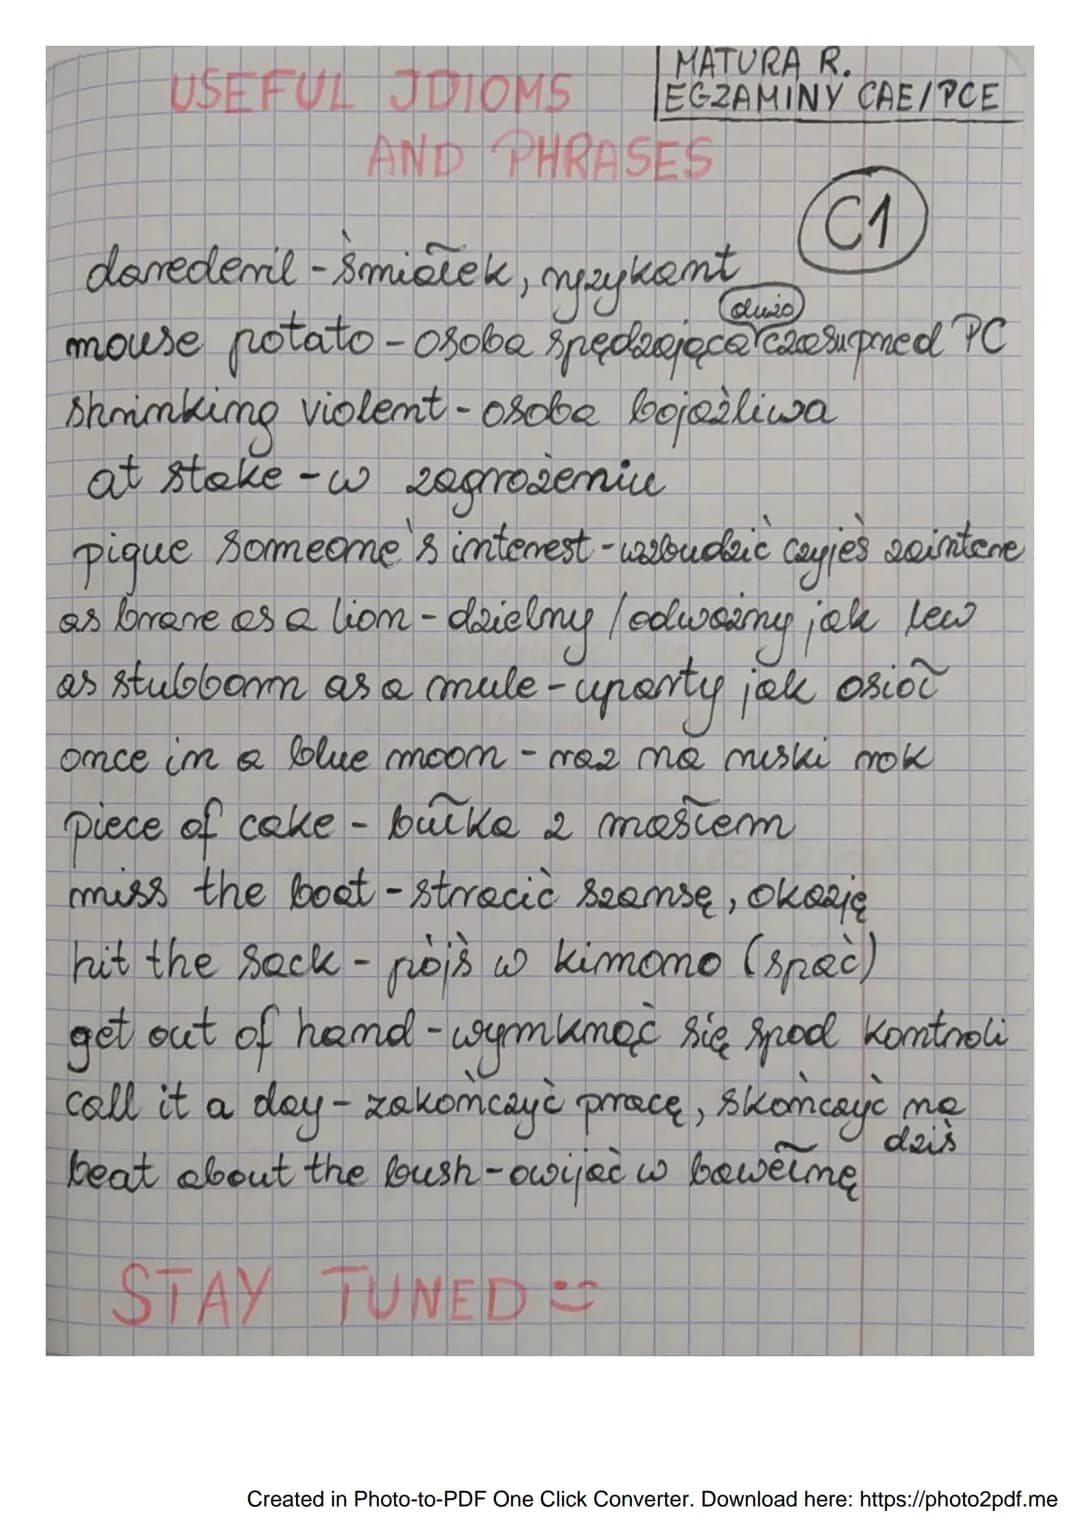 USEFUL IDIOMS
MATURA R.
EGZAMINY CAE/PCE
AND PHRASES
C1
daredevil - śmiałek, ryzykant
mouse potato - osoba spędzająca dużo czasu przed PC
shrinking violent - osoba bojaźliwa
at stake - w zagrożeniu
pique someone's interest - wzbudzić czyjeś zaintere
as brave as a lion - dzielny / odważny jak lew
as stubborn as a mule - uparty jak osioł
once in a blue moon - raz na ruski rok
piece of cake - bułka z masłem
miss the boat - stracić szansę, okazję
hit the sack - pójś w kimono (spać)
get out of hand - wymknąć się spod kontroli
call it a day - zakończyć pracę, skończyć na
dziś
beat about the bush - owijać w bawełnę
STAY TUNED :)
Created in Photo-to-PDF One Click Converter. Download here: https://photo2pdf.me